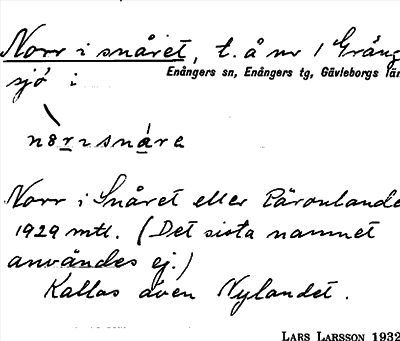 Norr i snåret, t. å nr 1 Gräng
Enångers sn, Enångers tg, Gävleborgs län
sjö i
Norr i Snåret eller Päronlande
1929 mtl. (Det sista namnet
användes ej.)
Kallas även Nylandet.
LARS LARSSON 1932